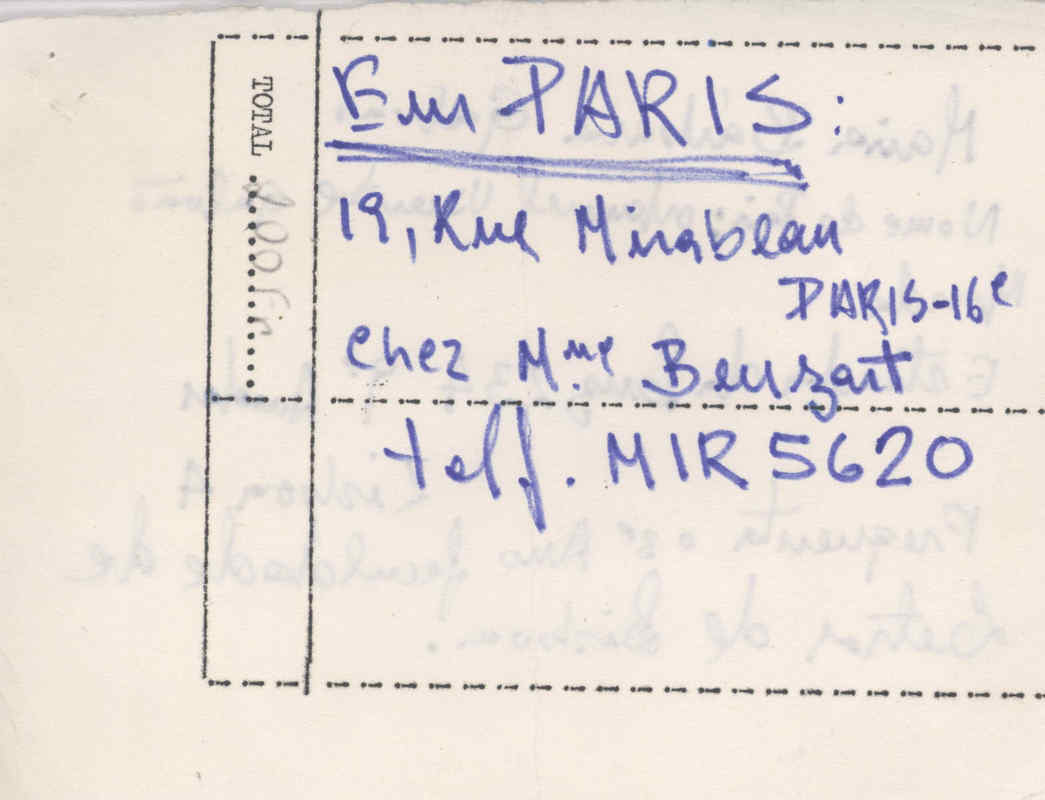 Em PARIS:
19, Rue Mirabeau
PARIS-16e
chez Mme Benszart
telf. MIR 5620
TOTAL